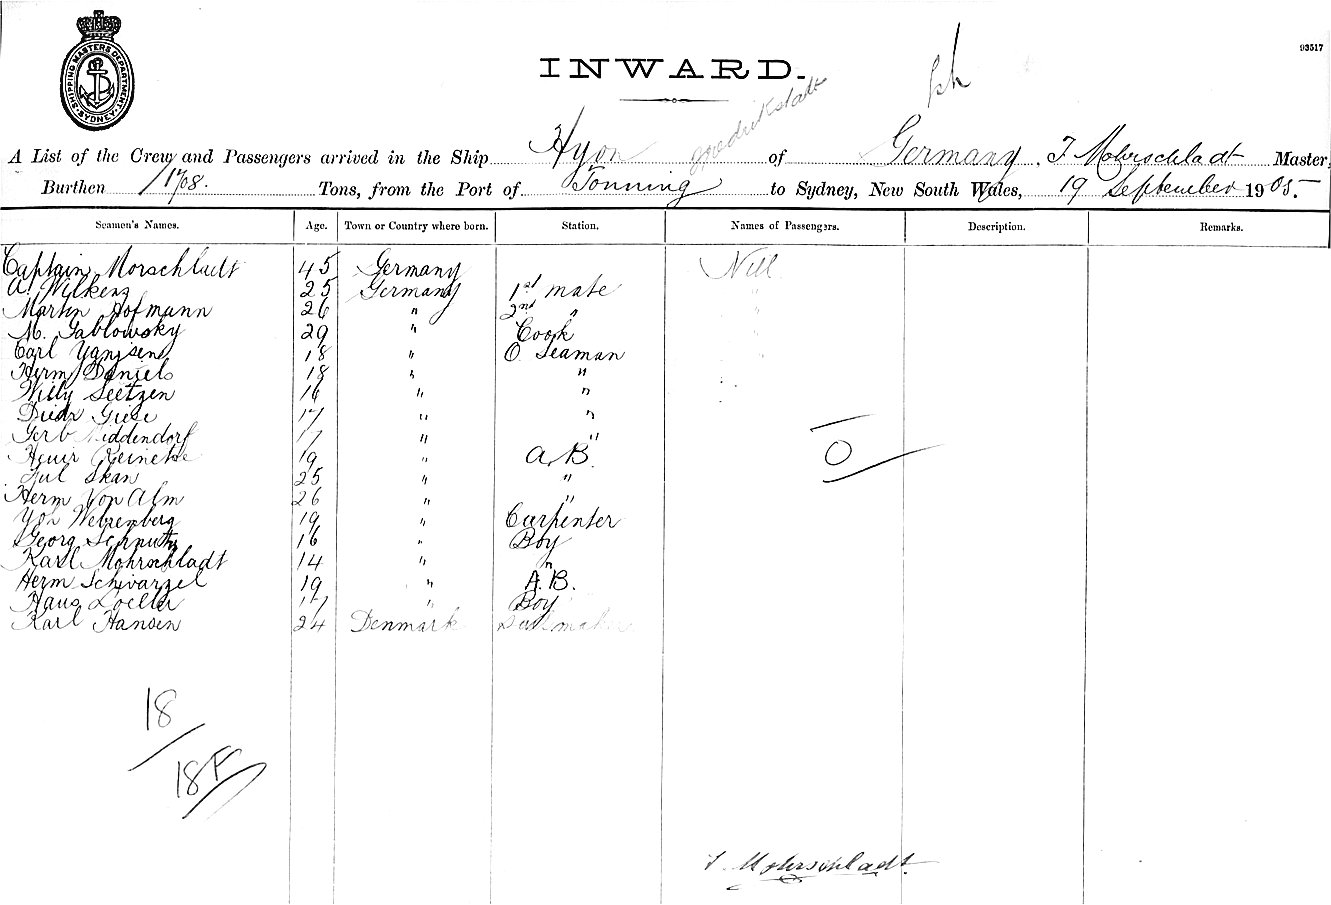 93517
SHIPPING MASTERS DEPARTMENT. SYDNEY.
INWARD.
A List of the Crew and Passengers arrived in the Ship Hyon of Germany, T. Mohrschladt Master,
Burthen 1708. Tons, from the Port of Tonning to Sydney, New South Wales, 19 September 1905.
Seamen's Names. Age. Town or Country where born. Station. Names of Passengers. Description. Remarks.
Captain Morschladt 45 Germany Nill
A. Wilkens 25 Germany 1st mate
Martin Hofmann 26 " 2nd "
M. Gablowsky 29 " Cook
Carl Yanssen 18 " O. Seaman
Herm Daniels 18 " "
Willy Seetzen 16 " "
Diedr Giese 17 " "
Gerb Middendorf 17 " "
Heinr Reineke 19 " A.B.
Jul Skan 25 " "
Herm Von Alm 26 " "
Yoh Wehrenberg 19 " Carpenter
Georg Schnutz 16 " Boy
Karl Mohrschladt 14 " "
Herm Schwarzel 19 " A.B.
Hans Loeller 17 " Boy
Karl Hansen 24 Denmark Sailmaker
O
18
18 F
T. Mohrschladt